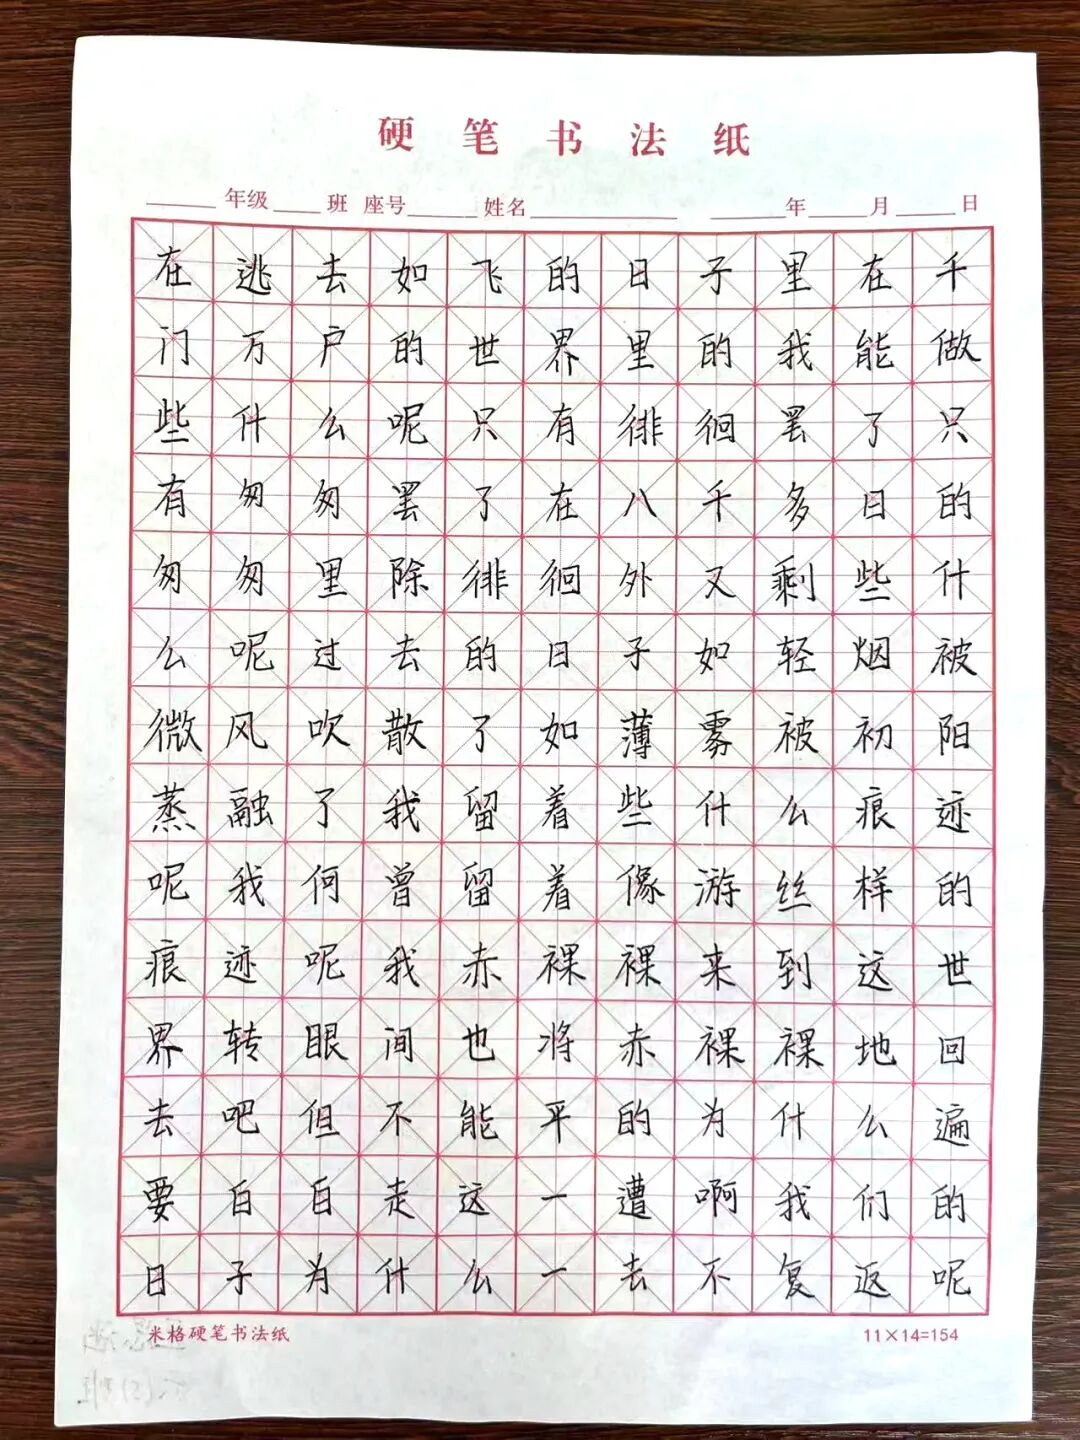 硬笔书法纸
年级 班 座号 姓名 年 月 日
在逃去如飞的日子里在千
门万户的世界里的我能做
些什么呢只有徘徊罢了只
有匆匆罢了在八千多日的
匆匆里除徘徊外又剩些什
么呢过去的日子如轻烟被
微风吹散了如薄雾被初阳
蒸融了我留着些什么痕迹
呢我何曾留着像游丝样的
痕迹呢我赤裸裸来到这世
界转眼间也将赤裸裸地回
去吧但不能平的为什么遍
要白白走这一遭啊我们的
日子为什么一去不复返呢
米格硬笔书法纸 11×14=154